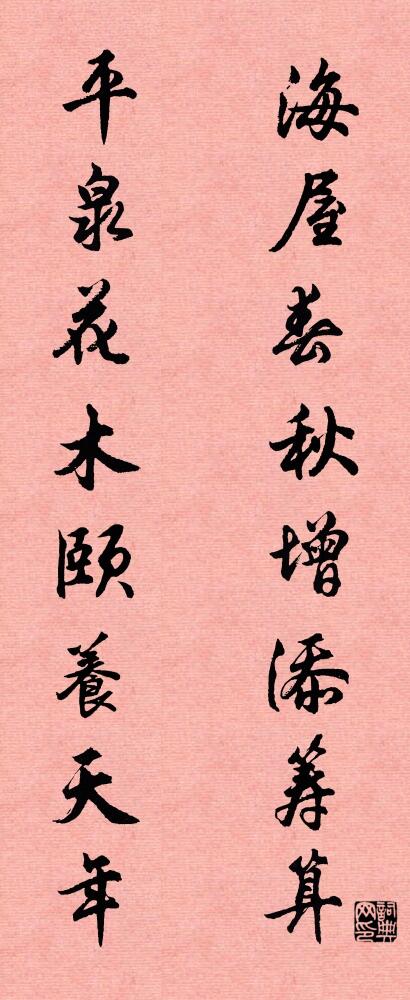 海屋春秋增添筹算
平泉花木頤養天年
詞典网印